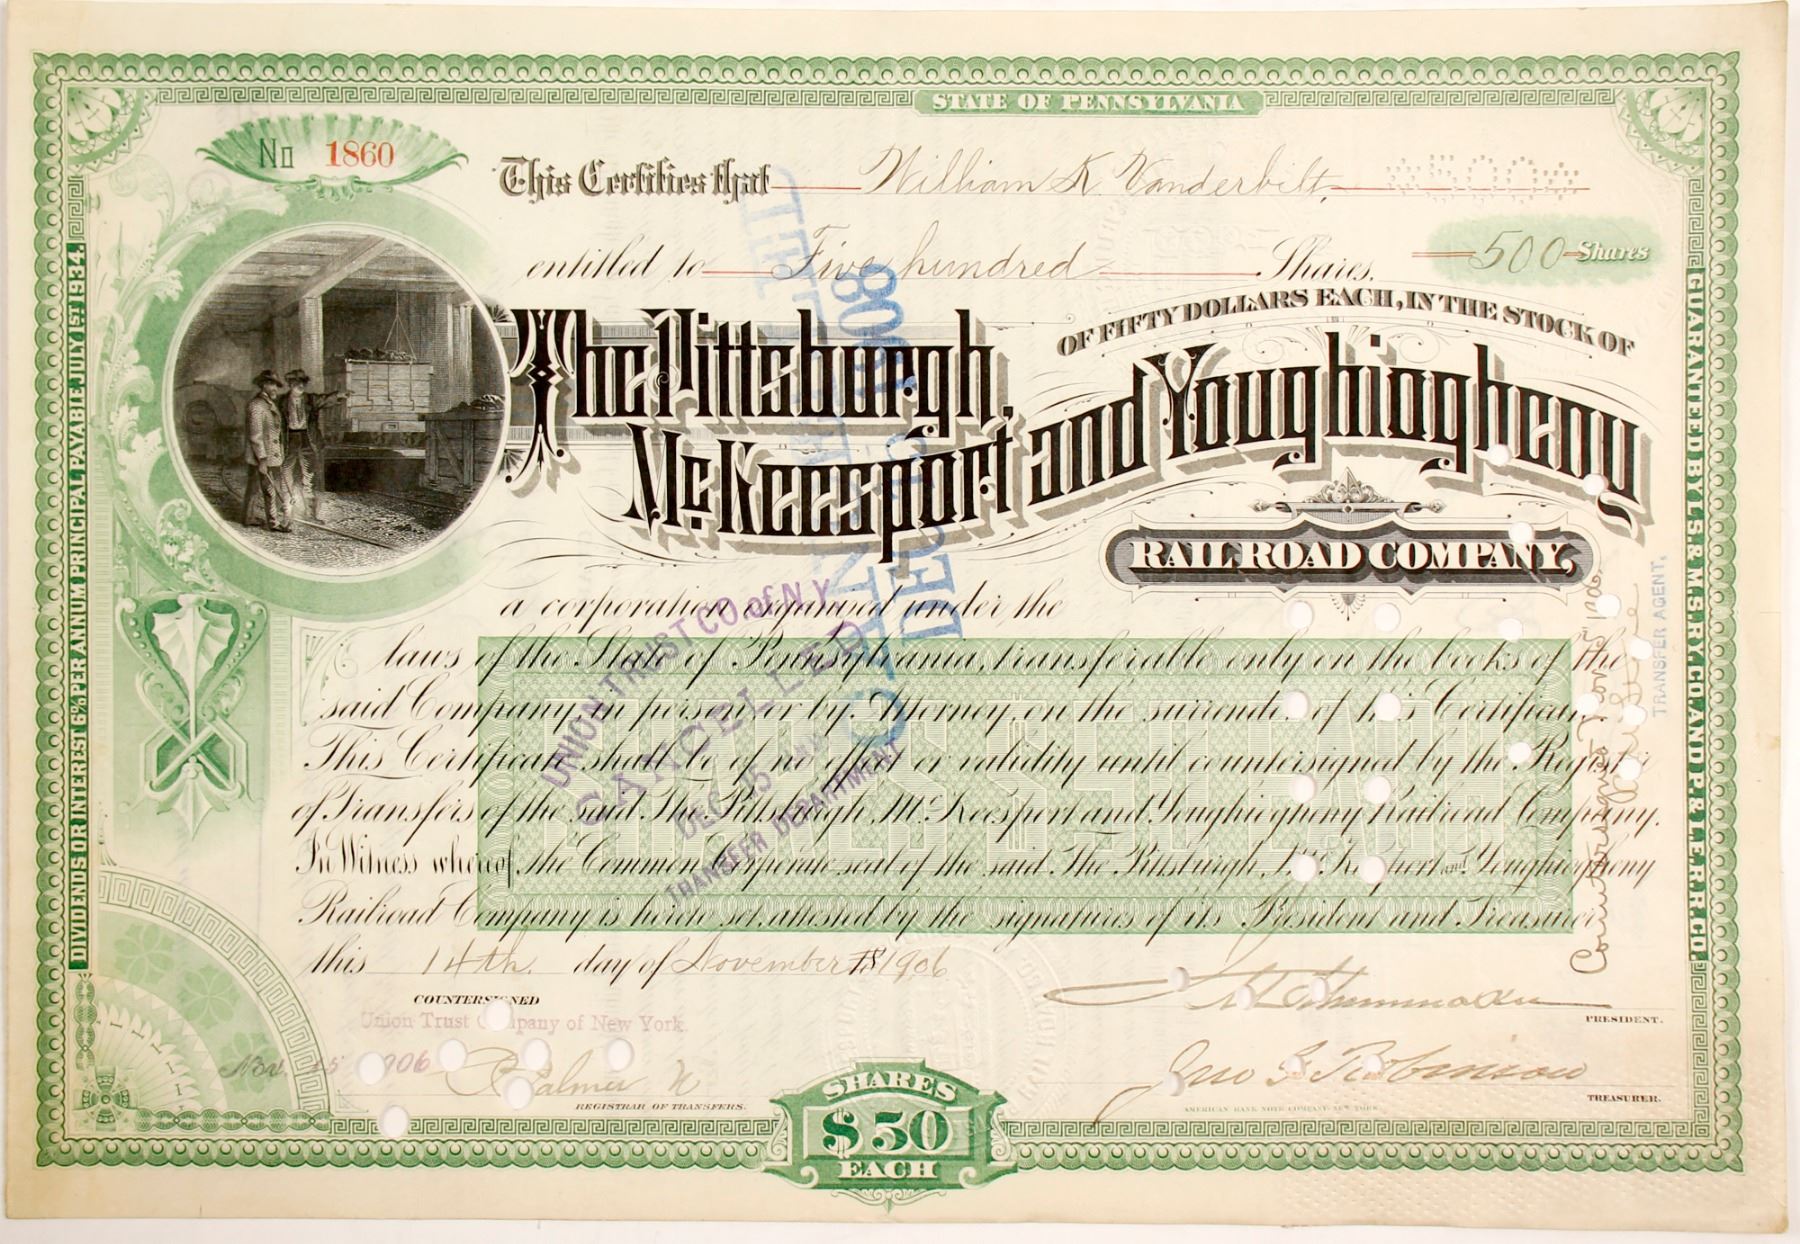 STATE OF PENNSYLVANIA
No 1860
This Certifies that William K Vanderbilt, 500
entitled to Five hundred Shares. 500 Shares
OF FIFTY DOLLARS EACH, IN THE STOCK OF
The Pittsburgh, McKeesport and Youghiogheny
RAIL ROAD COMPANY,
a corporation organized under the
laws of the State of Pennsylvania, transferable only on the books of the
said Company in person or by Attorney, on the surrender of this Certificate.
This Certificate shall be of no effect or validity until countersigned by the Register
of Transfers of the said The Pittsburgh, McKeesport and Youghiogheny Railroad Company.
In Witness whereof, the Common Corporate seal of the said The Pittsburgh, McKeesport and Youghiogheny
Railroad Company is hereto set, attested by the signatures of its President and Treasurer
this 14th. day of November 1906
COUNTERSIGNED
Union Trust Company of New York.
Nov. 15 1906
REGISTRAR OF TRANSFERS.
PRESIDENT.
Jno G Robinson
TREASURER.
AMERICAN BANK NOTE COMPANY NEW YORK
SHARES
$50
EACH
DIVIDENDS OR INTEREST 6% PER ANNUM PRINCIPAL PAYABLE JULY 1ST 1934.
GUARANTEED BY L.S. & M.S. RY. CO. AND P. & L.E. R.R. CO.
UNION TRUST CO. of N.Y.
CANCELLED
DEC 15
TRANSFER DEPARTMENT
Countersigned Nov 15 1906
TRANSFER AGENT.